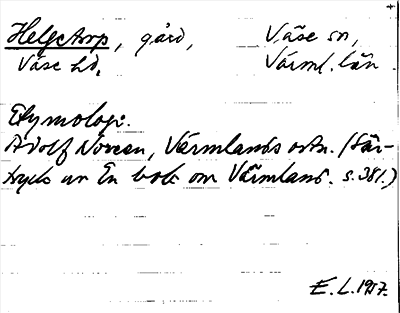 Helgetorp, gård, Väse sn,
Väse hd. Värml. län
Etymologi.
Adolf Noreen, Värmlands ortn. (Sär-
tryck ur En bok om Värmland. s. 381.)
E. L. 1917.